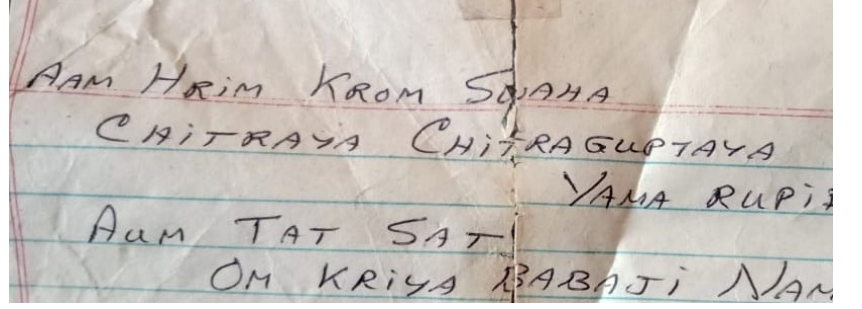 AAM HRiM KROM SWAHA
CHiTRAYA CHiTRAGUPTAYA
YAMA
AUM TAT SAT
OM KRiYA BABAJi